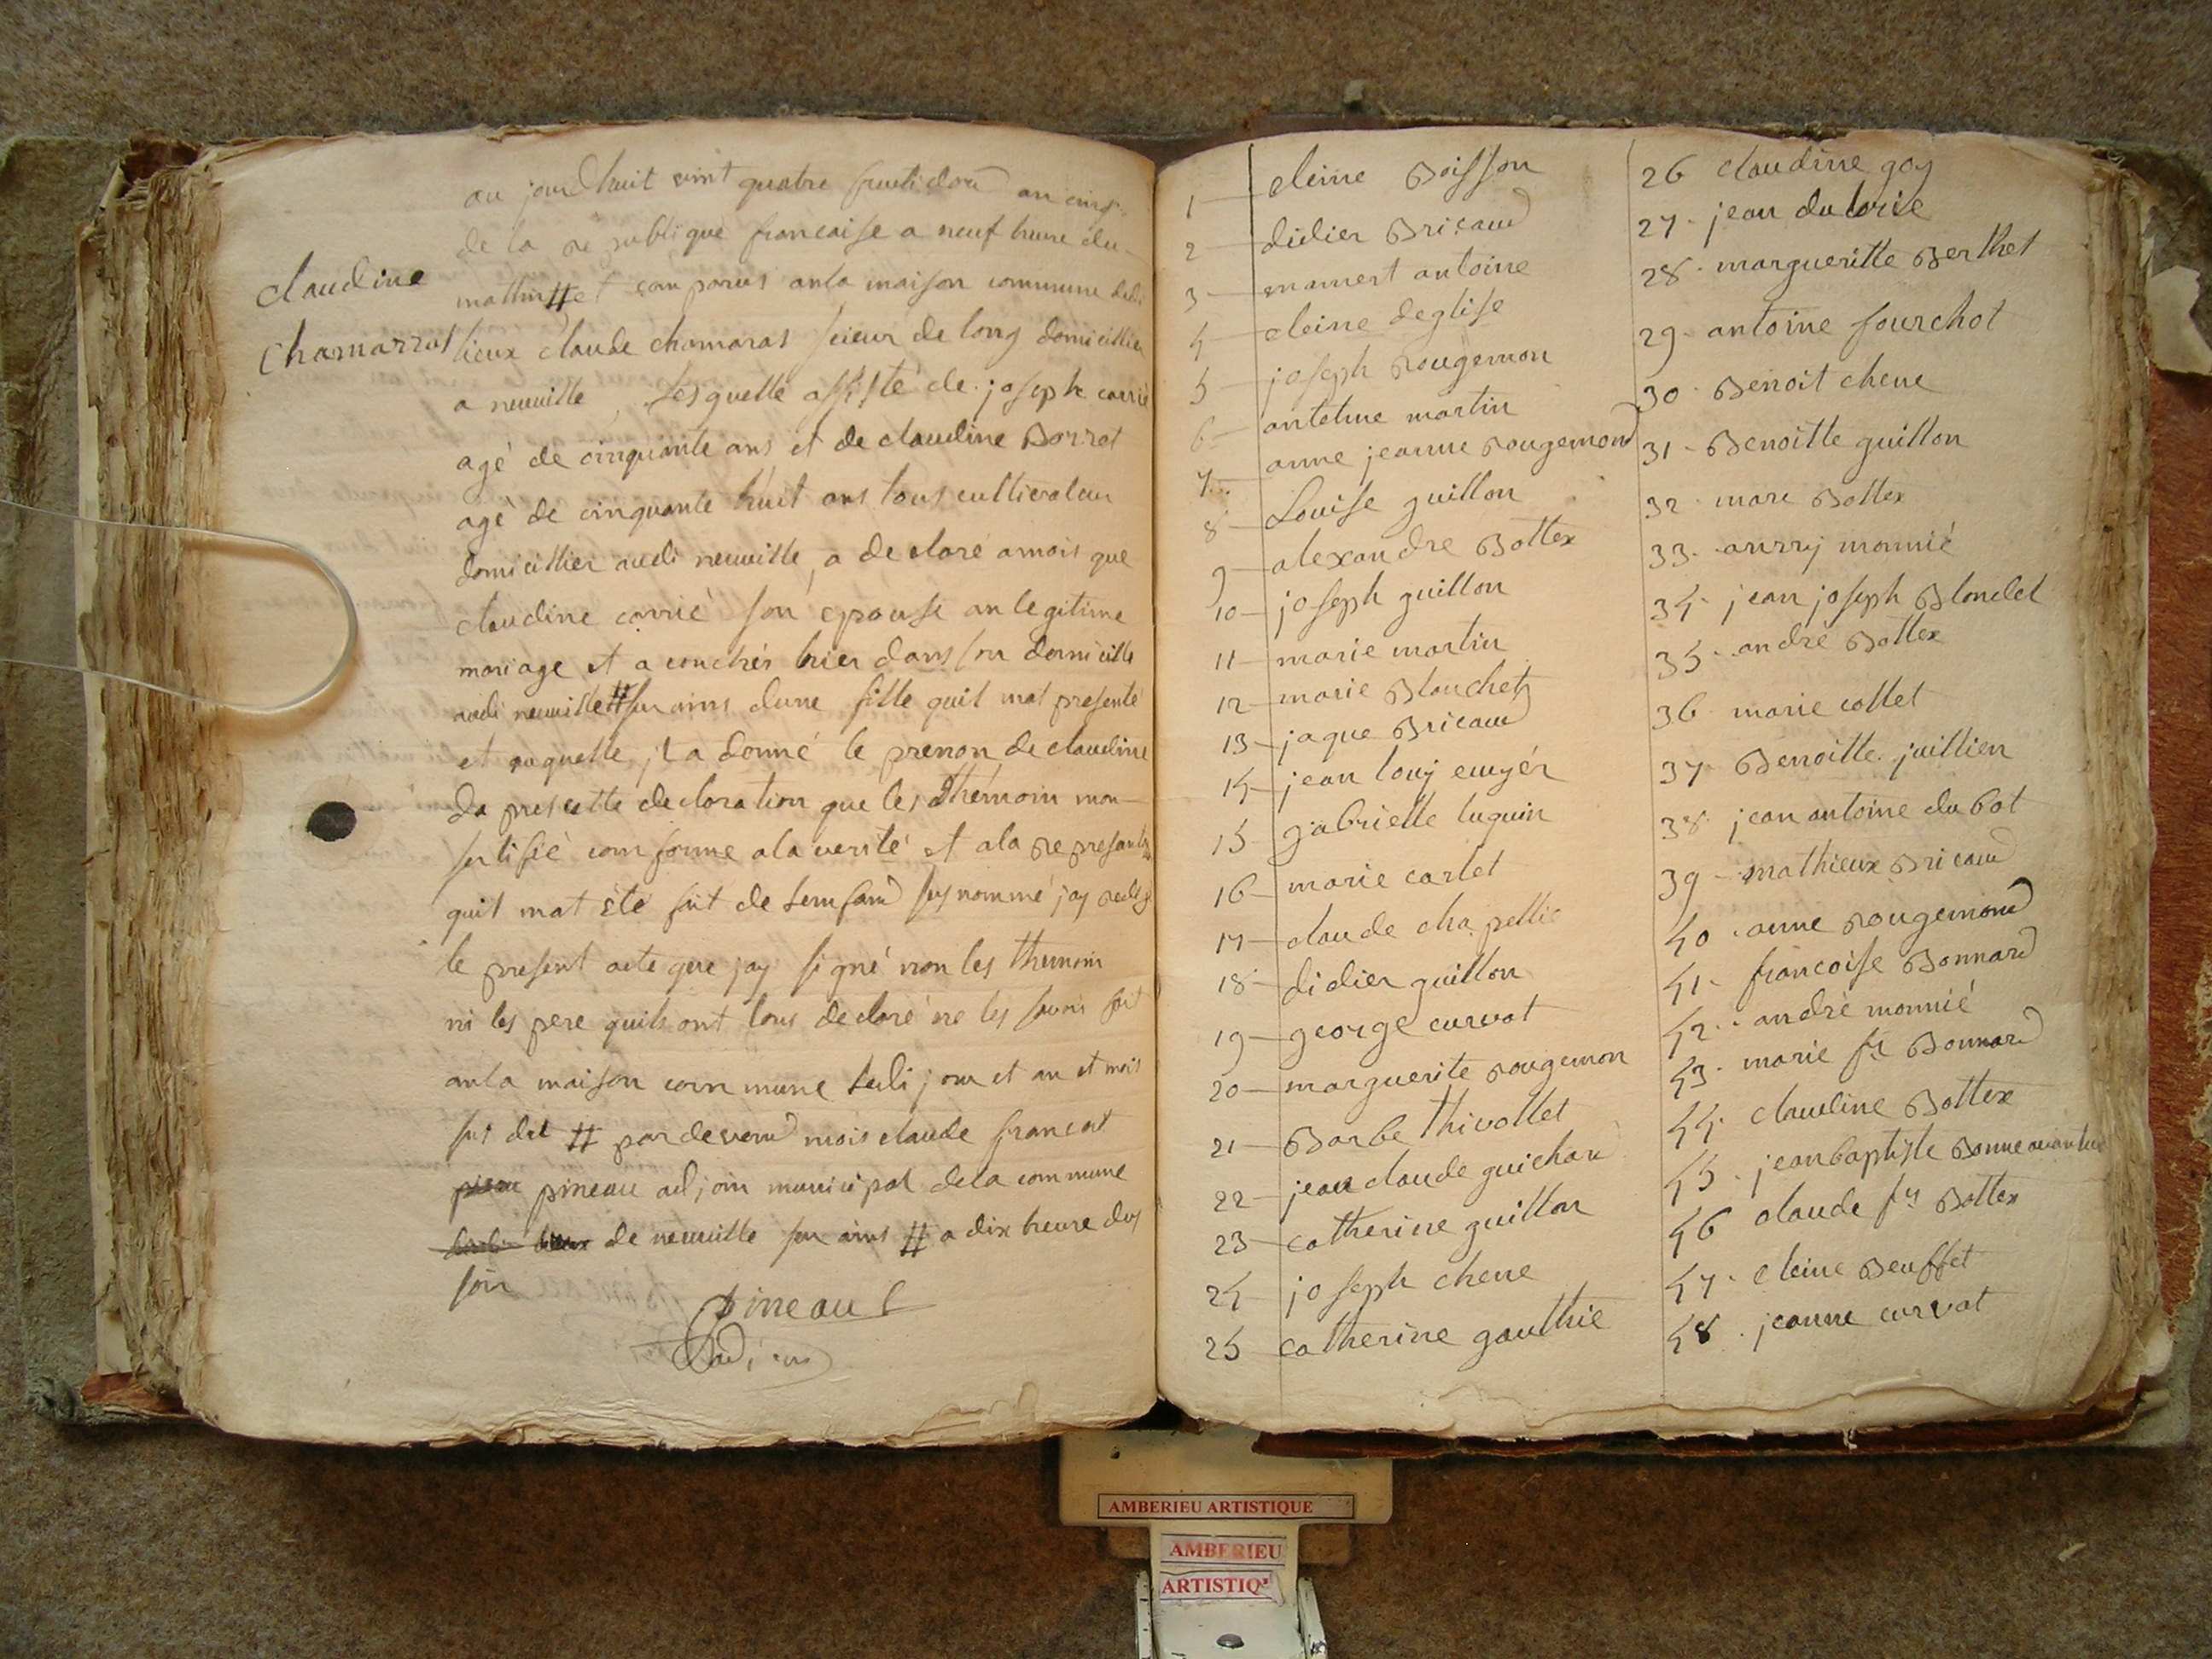 claudine
chamarrat
au jourdhuit vint quatre fructidord an cinq
de la re publique francaise a neuf heure du
mattin # et comparus anla maison commune dudi
lieux claude chamaras scieur de long domicillier
a neuville, lesquelle assisté de joseph carrié
agé de cinquante ans et de claudine Borrot
agé de cinquante huit ans tous cultivateur
domicillier audi neuville, a declaré amois que
claudine carrié son epouse an legitime
mariage et a couchés hier dans son domicille
audi neuville # sur ains dune fille quil mat presenté
et auquelle jl a donné le prenon de claudine
da prescette declaration que les thémoin mon
sertifié comforme ala verité et ala represanta
quil mat été fait de lemfand sus nommé jay redig
le present acte que jay signé non les themoin
ni les pere quils ont tous declaré ne les savoir fait
anla maison commune ledi jour et an et mois
sus dit # par devend mois claude francoit
pineau adjoin municipal dela commune
de neuville sur ains # a dix heure dus
soir
pineaut
adj
1 cleine Boisson
2 didier Bricaud
3 mamert antoine
4 cleine deglise
5 joseph Rougemon
6 antelme martin
7 anne jeanne Rougemond
8 Louise guillon
9 alexandre Bottex
10 joseph guillon
11 marie martin
12 marie Blanchet
13 jaque Bricaud
14 jean louy
15 gabrielle luguin
16 marie carlet
17 claude chapellie
18 didier guillon
19 george curvat
20 marguerite Rougemon
21 Barbe thivollet
22 jean claude guichard
23 catherine guillon
24 joseph chene
25 catherine gauthie
26 claudine goy
27 jean dulorie
28 margueritte Berthet
29 antoine fourchot
30 Benoit chene
31 Benoitte guillon
32 marc Bottex
33 anrry monnié
34 jean joseph Blondel
35 andré Bottex
36 marie collet
37 Benoitte juillien
38 jean antoine dubot
39 mathieux Bricaud
40 anne Rougemond
41 francoise Bonnard
42 andré monnié
43 marie fr Bonnard
44 claudine Bottex
45 jean baptiste Bonne
46 claude fs Bottex
47 cleine Beuffet
48 jeanne curvat
AMBERIEU ARTISTIQUE
AMBERIEU
ARTISTIQ